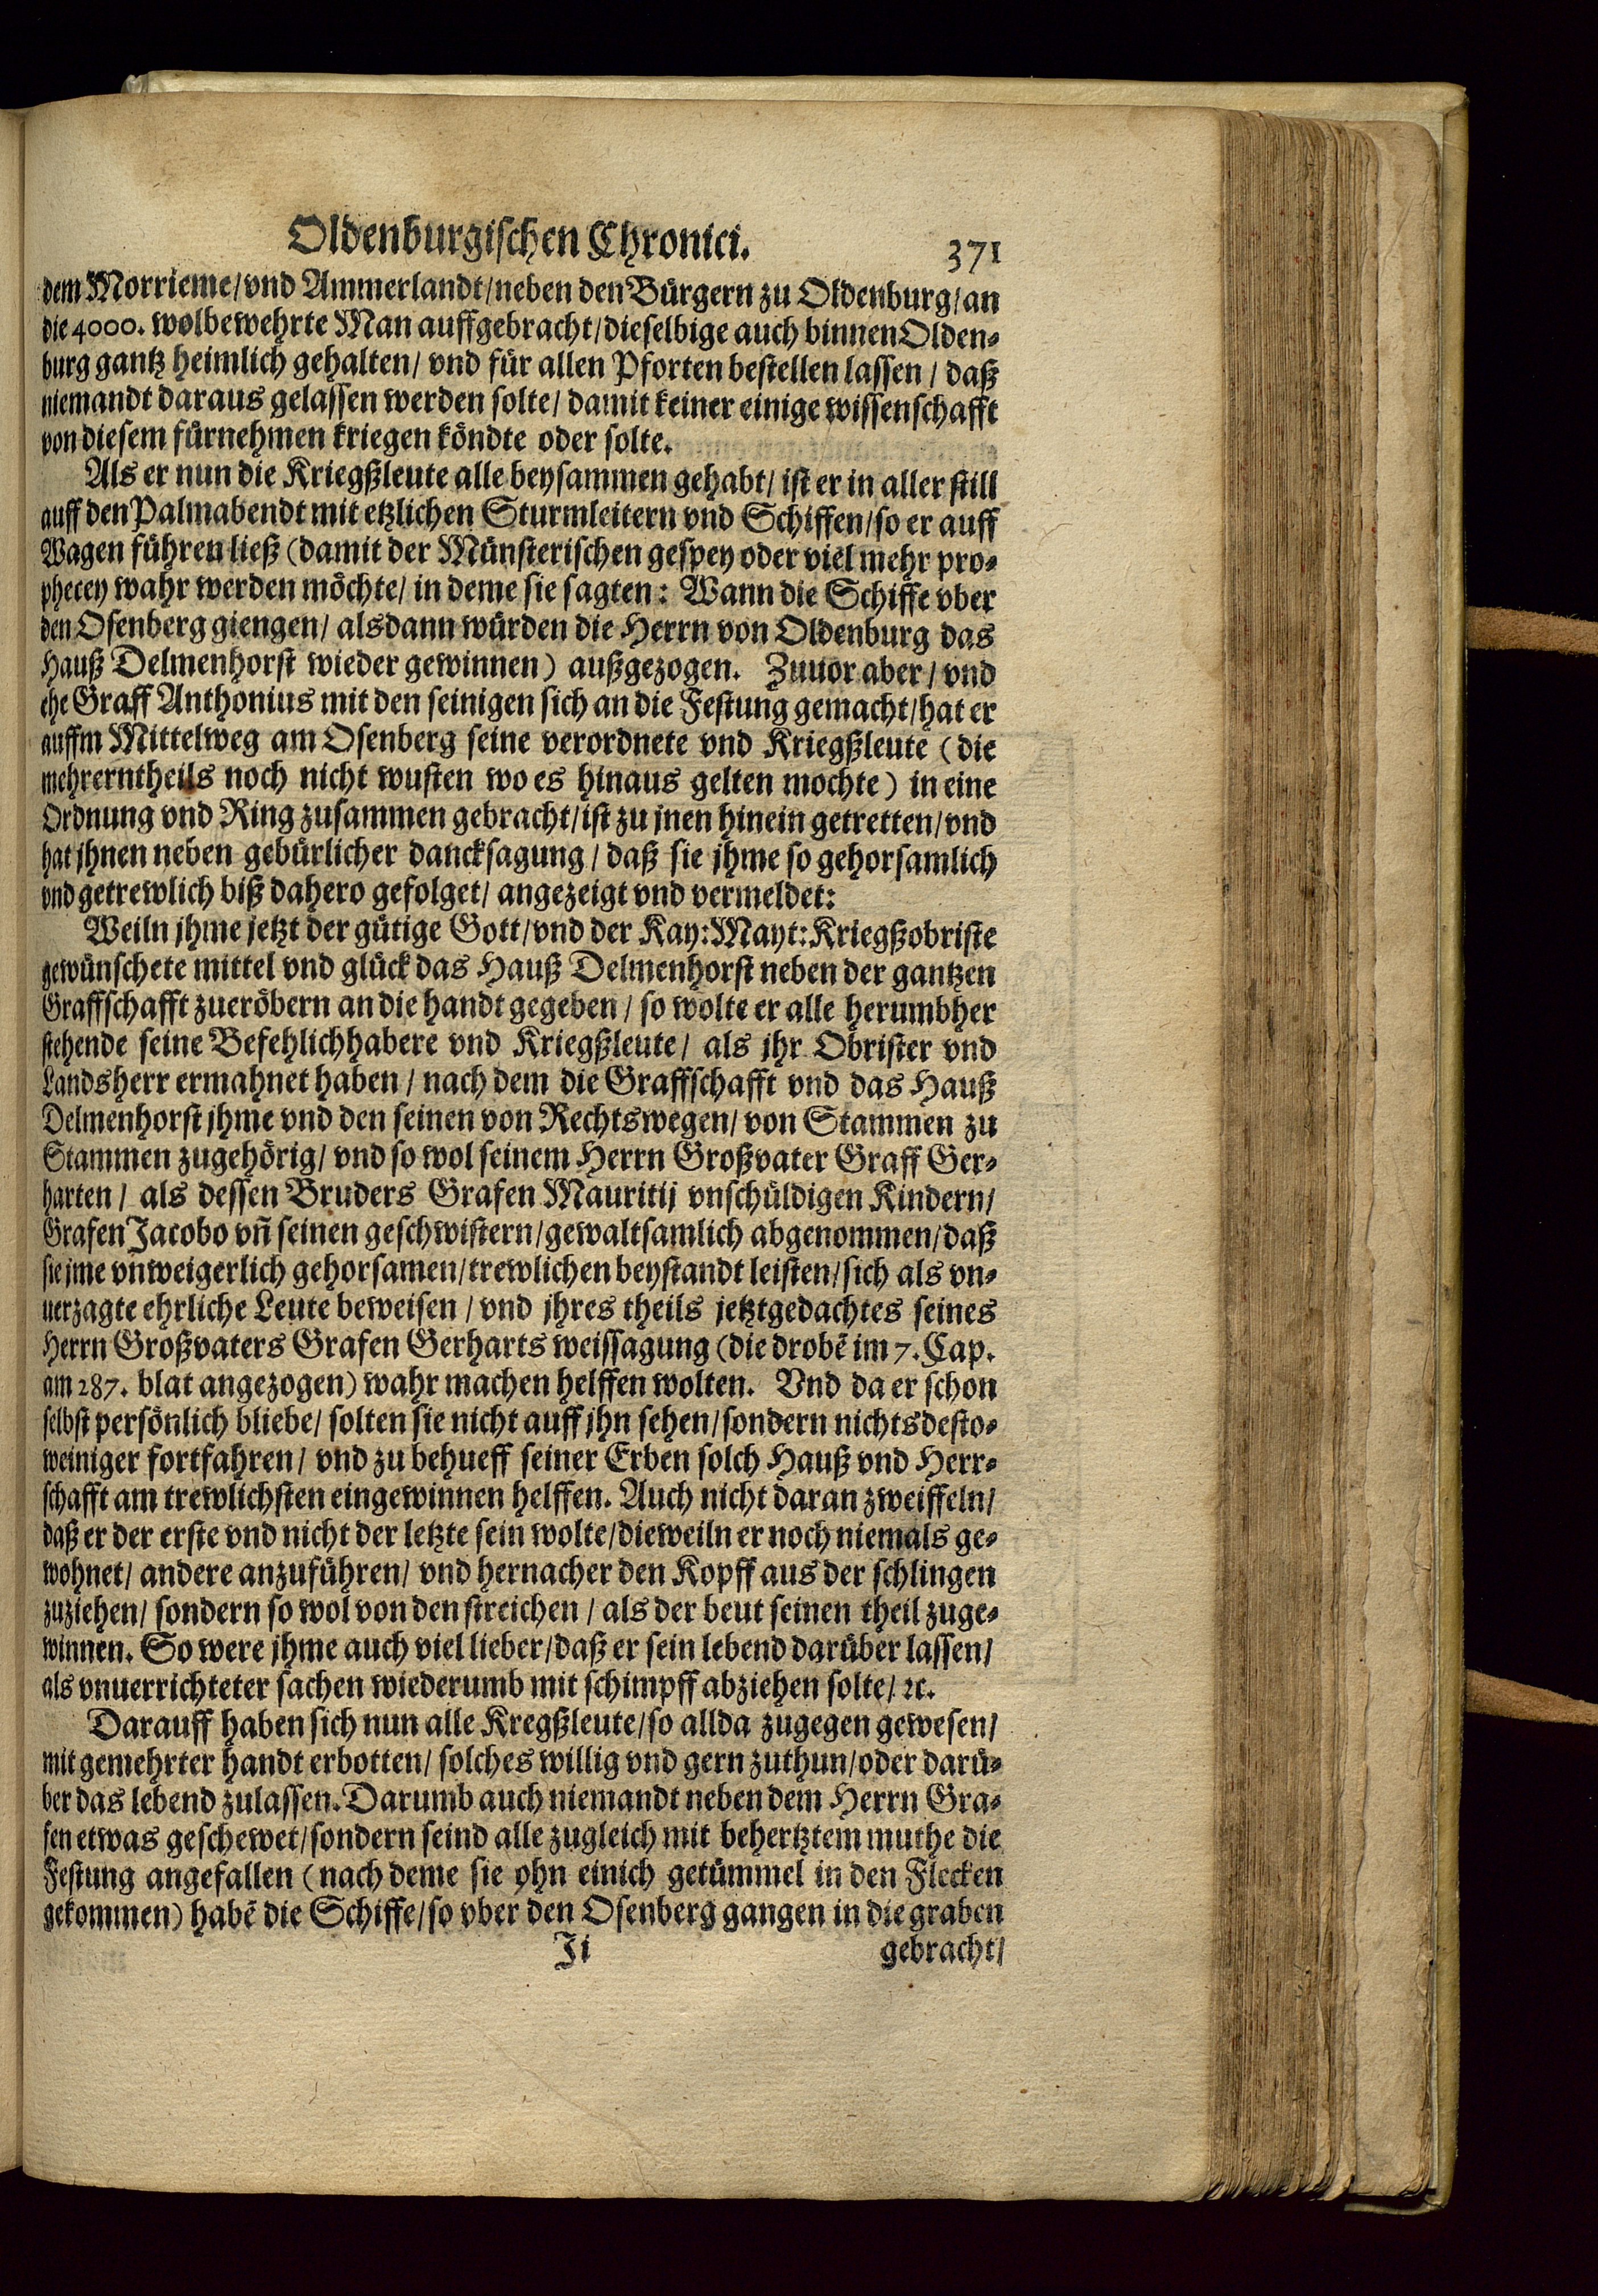 Oldenburgischen Chronici. 371
dem Morrieme/vnd Ammerlandt/neben den Bürgern zu Oldenburg/an
die 4000. wolbewehrte Man auffgebracht/dieselbige auch binnen Olden-
burg gantz heimlich gehalten/ vnd für allen Pforten bestellen lassen/ daß
niemandt daraus gelassen werden solte/ damit keiner einige wissenschafft
von diesem fürnehmen kriegen köndte oder solte.
Als er nun die Kriegßleute alle beysammen gehabt/ ist er in aller still
auff den Palmabendt mit etzlichen Sturmleitern vnd Schiffen/so er auff
Wagen führen ließ (damit der Münsterischen gespey oder viel mehr pro-
phecey wahr werden möchte/ in deme sie sagten: Wann die Schiffe vber
den Osenberg giengen/ alsdann würden die Herrn von Oldenburg das
Hauß Delmenhorst wieder gewinnen) außgezogen. Zuuor aber/ vnd
ehe Graff Anthonius mit den seinigen sich an die Festung gemacht/hat er
auffm Mittelweg am Osenberg seine verordnete vnd Kriegßleute (die
mehrerntheils noch nicht wusten wo es hinaus gelten mochte) in eine
Ordnung vnd Ring zusammen gebracht/ist zu jnen hinein getretten/vnd
hat jhnen neben gebürlicher dancksagung/ daß sie jhme so gehorsamlich
vnd getrewlich biß dahero gefolget/ angezeigt vnd vermeldet:
Weiln jhme jetzt der gütige Gott/vnd der Kay: Mayt: Kriegßobriste
gewünschete mittel vnd glück das Hauß Delmenhorst neben der gantzen
Graffschafft zueröbern an die handt gegeben/ so wolte er alle herumbher
stehende seine Befehlichhabere vnd Kriegßleute/ als jhr Obrister vnd
Landsherr ermahnet haben/ nach dem die Graffschafft vnd das Hauß
Delmenhorst jhme vnd den seinen von Rechtswegen/ von Stammen zu
Stammen zugehörig/ vnd so wol seinem Herrn Großvater Graff Ger-
harten/ als dessen Bruders Grafen Mauritij vnschüldigen Kindern/
Grafen Jacobo vñ seinen geschwistern/gewaltsamlich abgenommen/daß
sie jme vnweigerlich gehorsamen/trewlichen beystandt leisten/sich als vn-
uerzagte ehrliche Leute beweisen/ vnd jhres theils jetztgedachtes seines
Herrn Großvaters Grafen Gerharts weissagung (die drobē im 7. Cap.
am 287. blat angezogen) wahr machen helffen wolten. Vnd da er schon
selbst persönlich bliebe/ solten sie nicht auff jhn sehen/sondern nichtsdesto-
weiniger fortfahren/ vnd zu behueff seiner Erben solch Hauß vnd Herr-
schafft am trewlichsten eingewinnen helffen. Auch nicht daran zweiffeln/
daß er der erste vnd nicht der letzte sein wolte/dieweiln er noch niemals ge-
wohnet/ andere anzuführen/ vnd hernacher den Kopff aus der schlingen
zuziehen/ sondern so wol von den streichen/ als der beut seinen theil zuge-
winnen. So were jhme auch viel lieber/daß er sein lebend darüber lassen/
als vnuerrichteter sachen wiederumb mit schimpff abziehen solte/ ꝛc.
Darauff haben sich nun alle Kregßleute/so allda zugegen gewesen/
mit gemehrter handt erbotten/ solches willig vnd gern zuthun/oder darü-
ber das lebend zulassen. Darumb auch niemandt neben dem Herrn Gra-
fen etwas geschewet/sondern seind alle zugleich mit behertztem muthe die
Festung angefallen (nach deme sie ohn einich getümmel in den Flecken
gekommen) habē die Schiffe/so vber den Osenberg gangen in die graben
Ji gebracht/